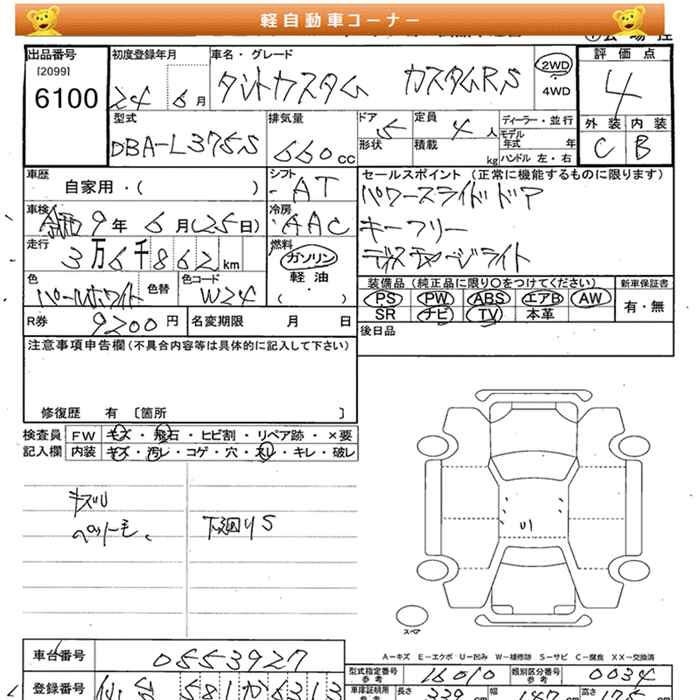 軽自動車コーナー
出品番号 初度登録年月 車名・グレード 評価点
[2099]
6100 24 6月 タントカスタム カスタムRS 2WD 4WD 4
型式 排気量 ドア 定員 ディーラー・並行 外装 内装
DBA-L375S 660cc 5 4人 モデル年式 年 C B
形状 積載 kg ハンドル 左・右
車歴 自家用・( ) シフト AT セールスポイント (正常に機能するものに限ります)
パワースライドドア
車検 令和9年6月(25日) 冷房 AAC キーフリー
走行 3万6千862km 燃料 ガソリン 軽油 ( ) ディスチャージライト
色 パールホワイト 色替 色コード W24 装備品(純正品に限り〇をつけてください) 新車保証書
PS PW ABS エアB AW 有・無
SR ナビ TV 本革
R券 9200円 名変期限 月 日 後日品
注意事項申告欄(不具合内容等は具体的に記入して下さい)
修復歴 有 [箇所 ]
検査員 FW キズ・飛石・ヒビ割・リペア跡・×要
記入欄 内装 キズ・汚レ・コゲ・穴・スレ・キレ・破レ
キズU
ペット毛、 下廻りS
スペア
A-キズ E-エクボ U-凹み W-補修跡 S-サビ C-腐食 XX-交換済
車台番号 0553927 型式指定番号 参考 16010 類別区分番号 参考 0034
登録番号 仙台 581か5313 車庫証明用 参考 長さ 339cm 幅 147cm 高さ 175cm